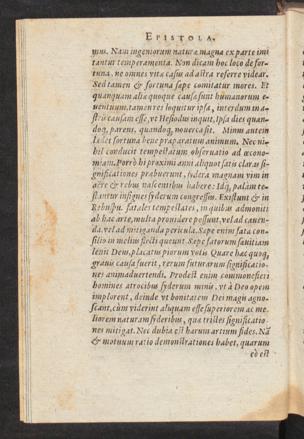 EPISTOLA.
mus. Nam ingeniorum naturæ magna ex parte imi
tantur temperamenta. Non dicam hoc loco de for-
tuna, ne omnes vitæ casus ad astra referre videar.
Sed tamen & fortuna sæpe comitatur mores. Et
quanquam aliæ quoque causæ sunt humanorum e-
uentuum, tamen te loquitur ipsa, interdum
causam esse, vt Hesiodus inquit, Ipsa dies quan-
doq, parens, quandoq, nouerca sit. Minus autem
lædet fortuna bene præparatum animum. Nec ni-
hil conducit tempestatum obseruatio ad œcono-
miam. Porrò hi proximi anni aliquot satis claras si-
gnificationes præbuerunt, sydera magnam vim in
aëre & rebus nascentibus habere: Idq, palàm te-
stantur insignes syderum congressus. Existunt & in
Rebusp. fatales tempestates, in quibus admoniti
ab hac arte, multa prouidere possunt, vel ad cauen-
da, vel ad mitiganda pericula. Sæpe enim fata con-
silio in melius flecti queunt. Sæpe fatorum sæuitiam
lenit Deus, placatus piorum votis. Quare hæc quoq,
grauis causa fuerit, rerum futurarum significatio-
nes animaduertendi. Prodest enim commonefieri
homines atrocibus syderum minis, vt à Deo opem
implorent, deinde vt bonitatem Dei magis agno-
scant, cùm viderint aliquam esse superiorem ac me-
liorem naturam syderibus, quæ tristes significatio-
nes mitigat. Nec dubia est harum artium fides. Nã
& motuum ratio demonstrationes habet, quarum
ea est